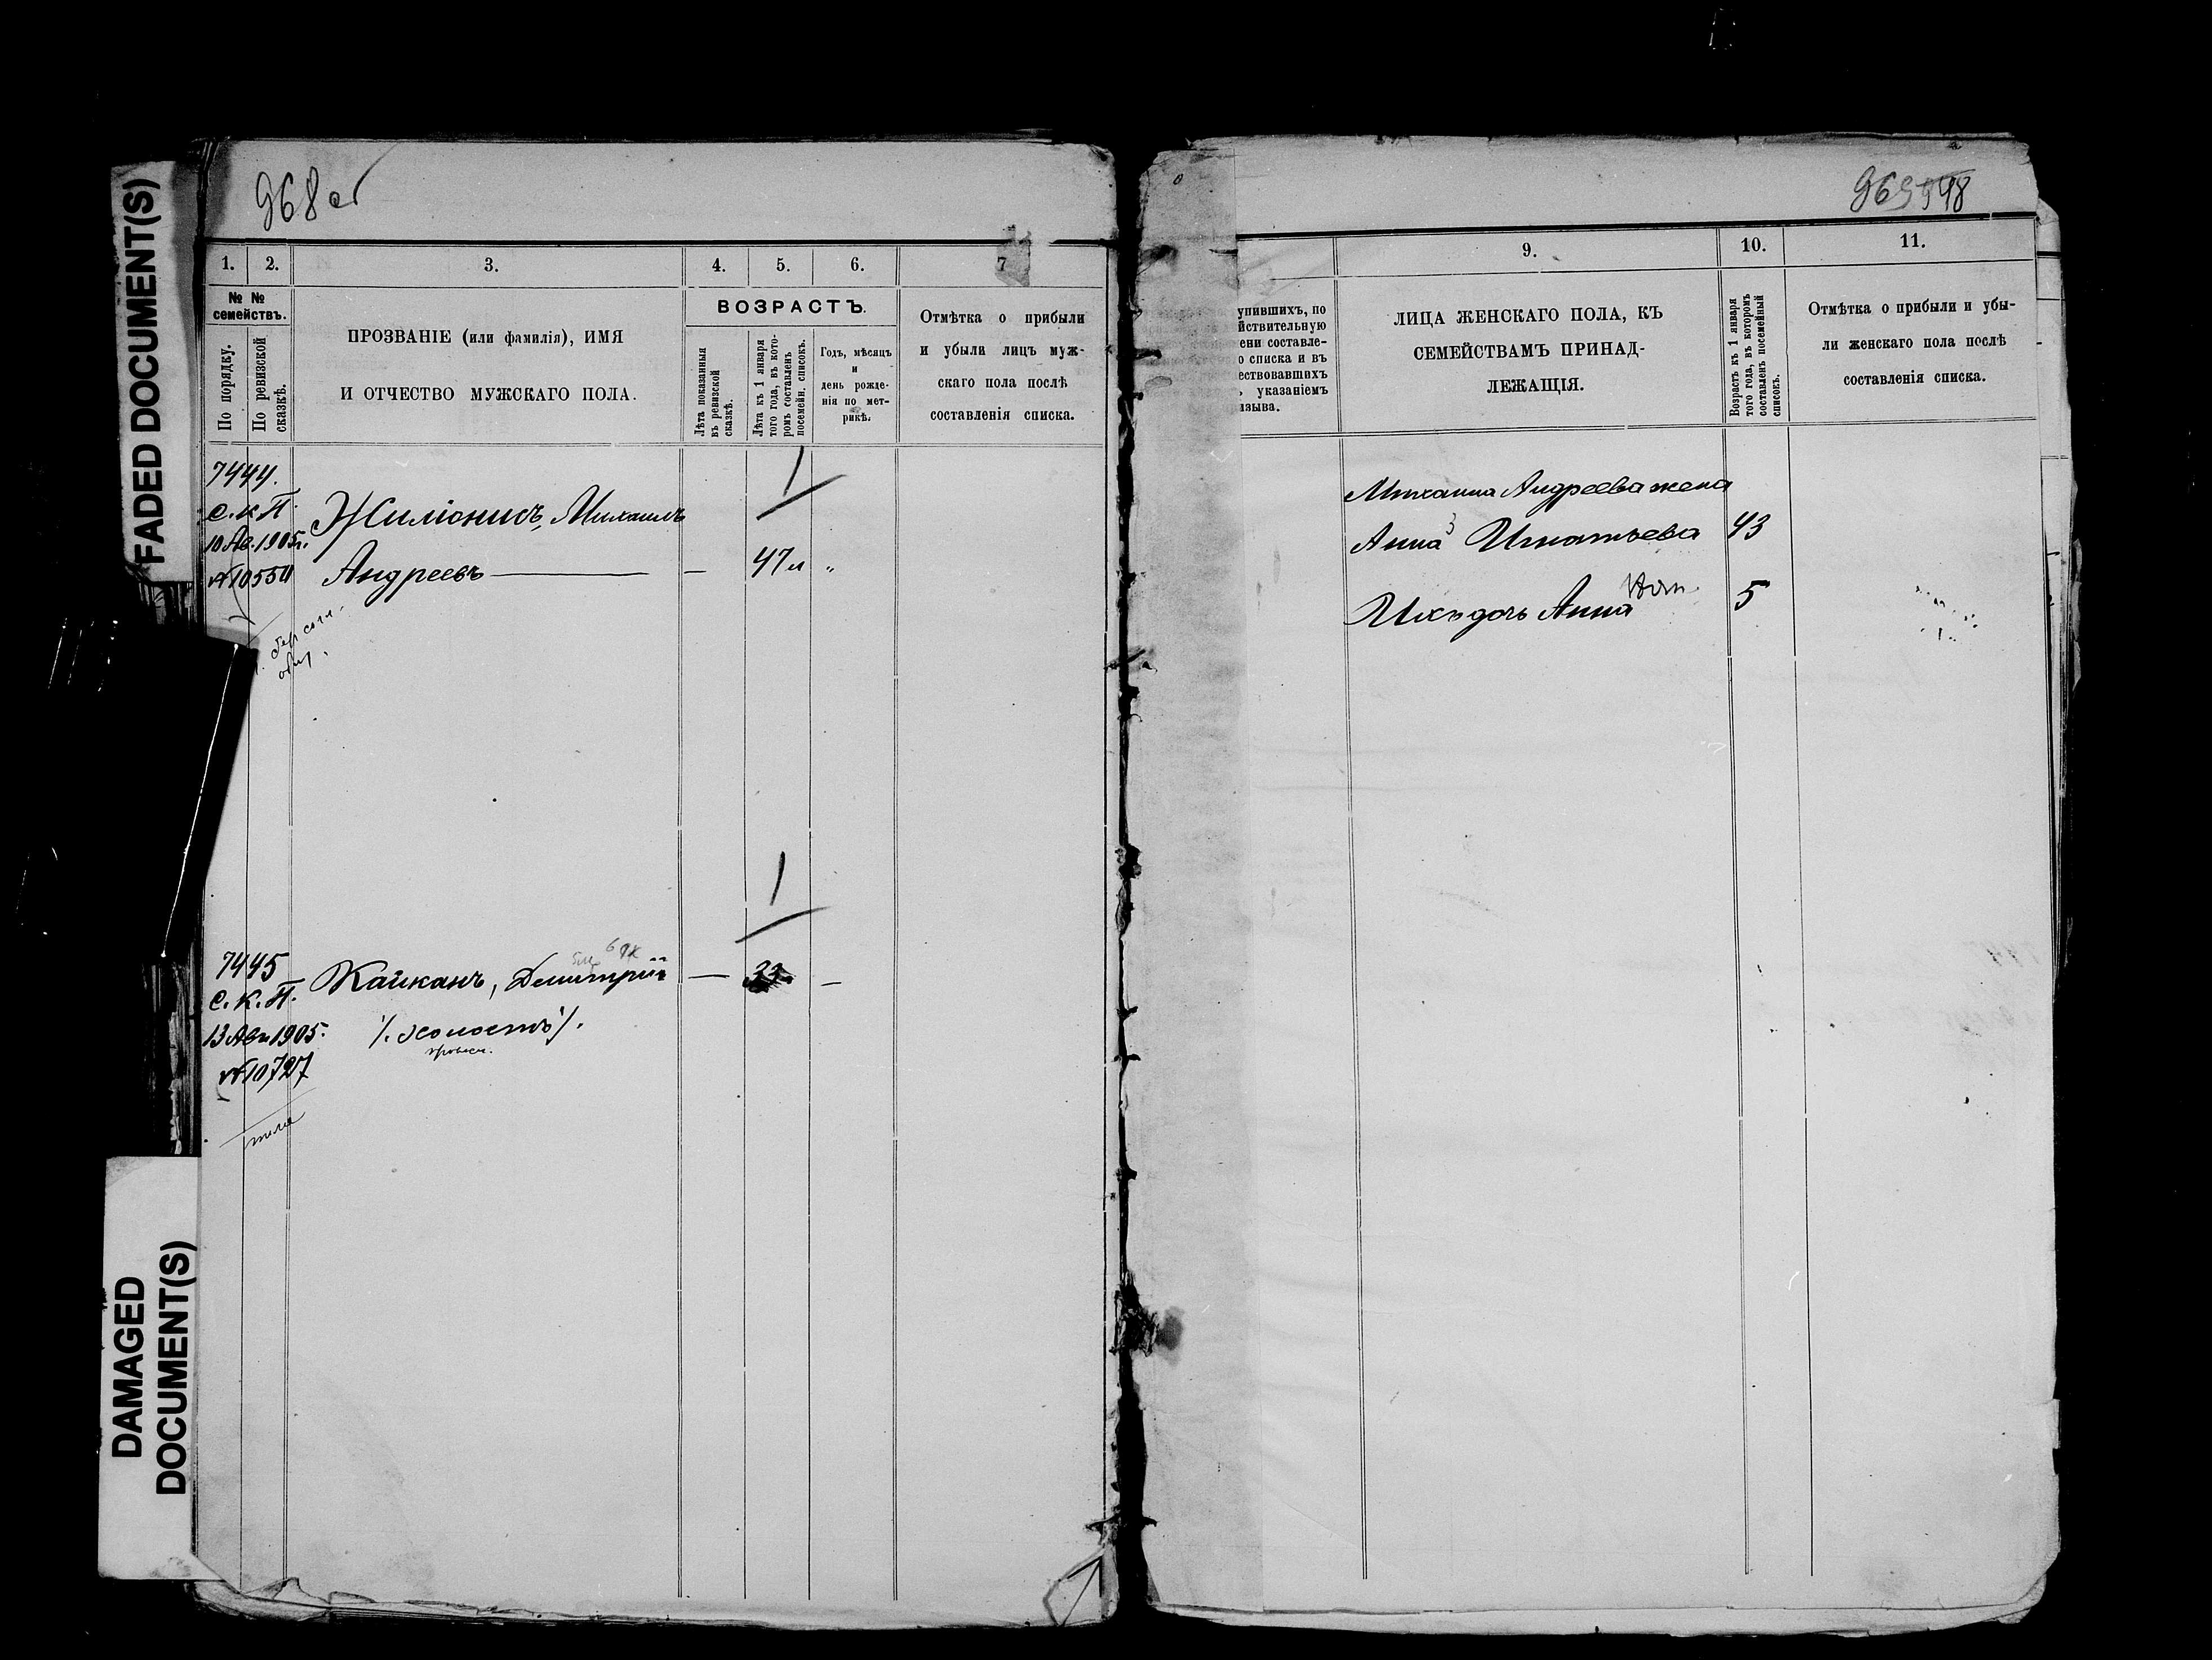 FADED DOCUMENT(S)
DAMAGED
DOCUMENT(S)
968 об
1. 2. 3. 4. 5. 6. 7
№ №
семействъ.
По порядку.
По ревизской
сказкѣ.
ПРОЗВАНІЕ (или фамилія), ИМЯ
И ОТЧЕСТВО МУЖСКАГО ПОЛА.
ВОЗРАСТЪ.
Лѣта показанныя
въ ревизской
сказкѣ.
Лѣта къ 1 января
того года, въ кото-
ромъ составленъ
посемейн. списокъ.
Годъ, мѣсяцъ
и
день рожде-
нія по мет-
рикѣ.
Отмѣтка о прибыли
и убыли лицъ муж-
скаго пола послѣ
составленія списка.
7444.
С.К.П.
10 Ав. 1905г.
№10554
1
Жиліонисъ, Михаилъ
Андреевъ — — 47 л "
1
7445
С.К.П.
13 Авг 1905.
№10727
Кайканъ, Димитрій — 33 —
/. холостъ /.
969
9. 10. 11.
упившихъ, по
йствительную
ени составле-
о списка и въ
ествовавшихъ
ъ указаніемъ
изыва.
ЛИЦА ЖЕНСКАГО ПОЛА, КЪ
СЕМЕЙСТВАМЪ ПРИНАД-
ЛЕЖАЩІЯ.
Возрастъ къ 1 января
того года, въ которомъ
составленъ посемейный
списокъ.
Отмѣтка о прибыли и убы-
ли женскаго пола послѣ
составленія списка.
Михаила Андреева жена
Анна Игнатьева 43
Ихъ дочь Анна 5